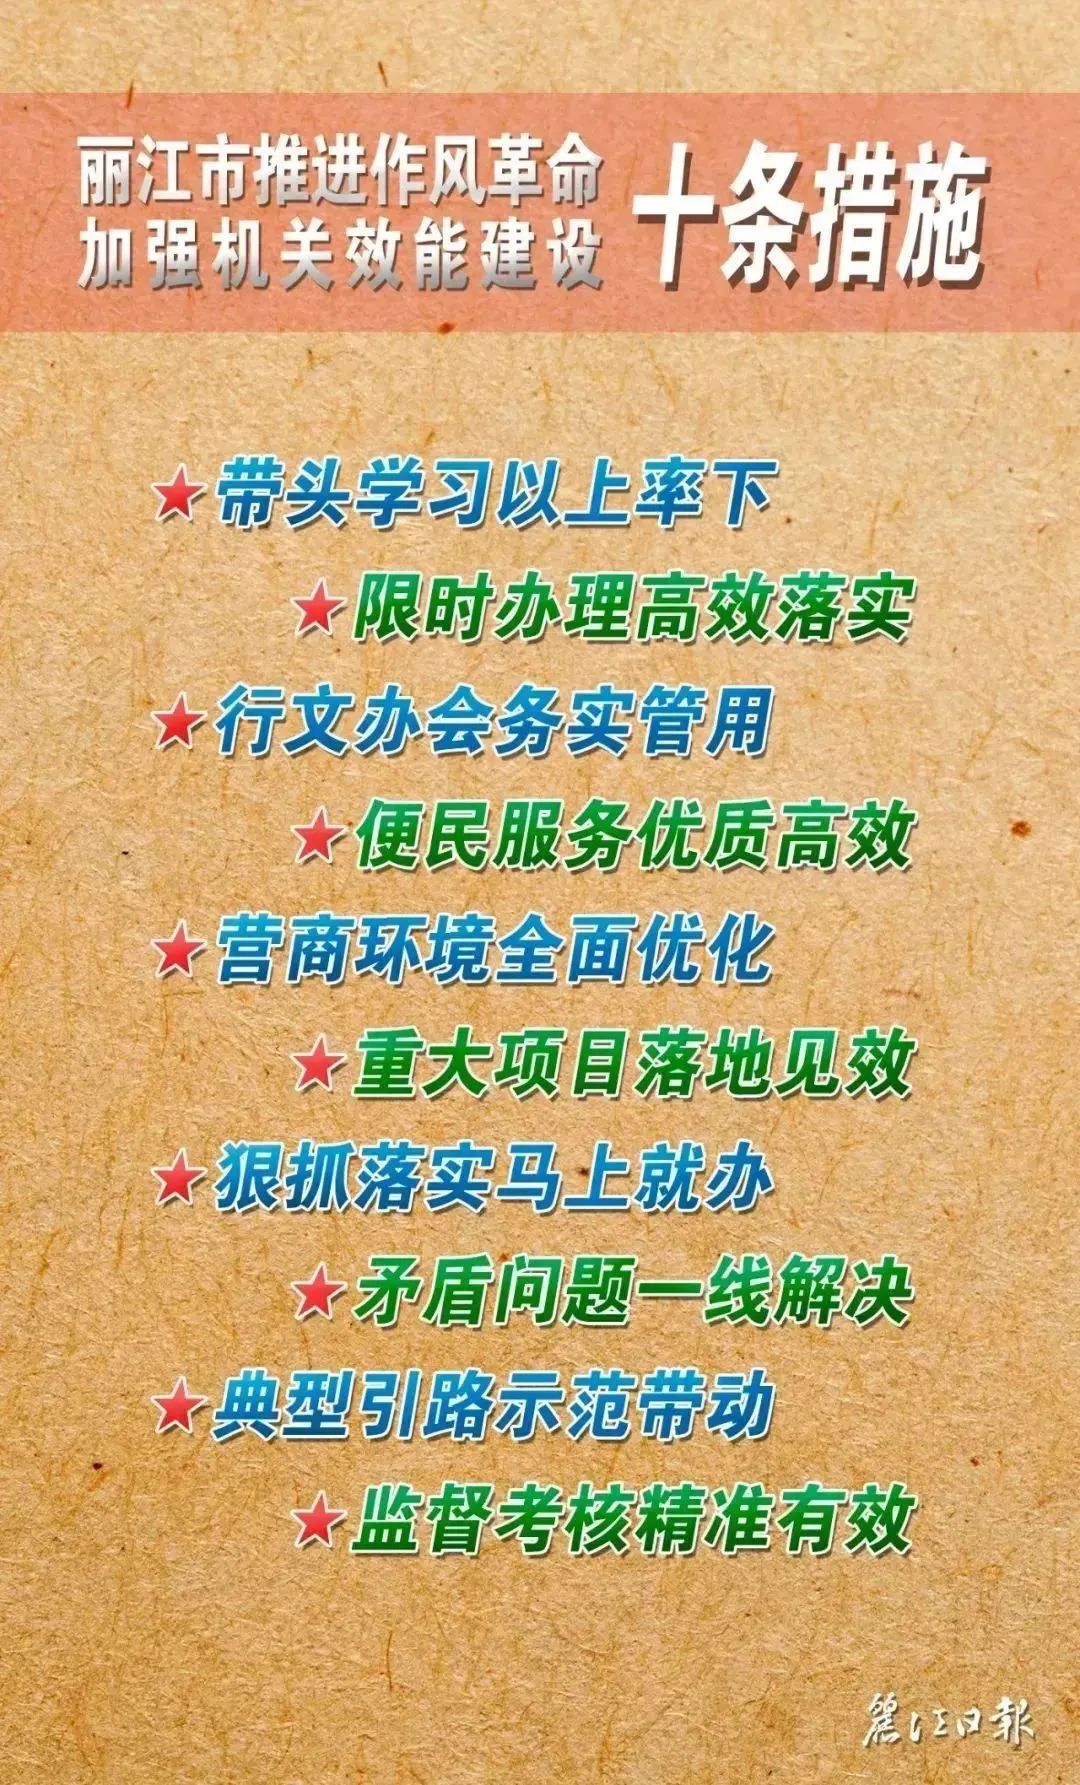 丽江市推进作风革命
加强机关效能建设
十条措施
带头学习以上率下
限时办理高效落实
行文办会务实管用
便民服务优质高效
营商环境全面优化
重大项目落地见效
狠抓落实马上就办
矛盾问题一线解决
典型引路示范带动
监督考核精准有效
麗江日報